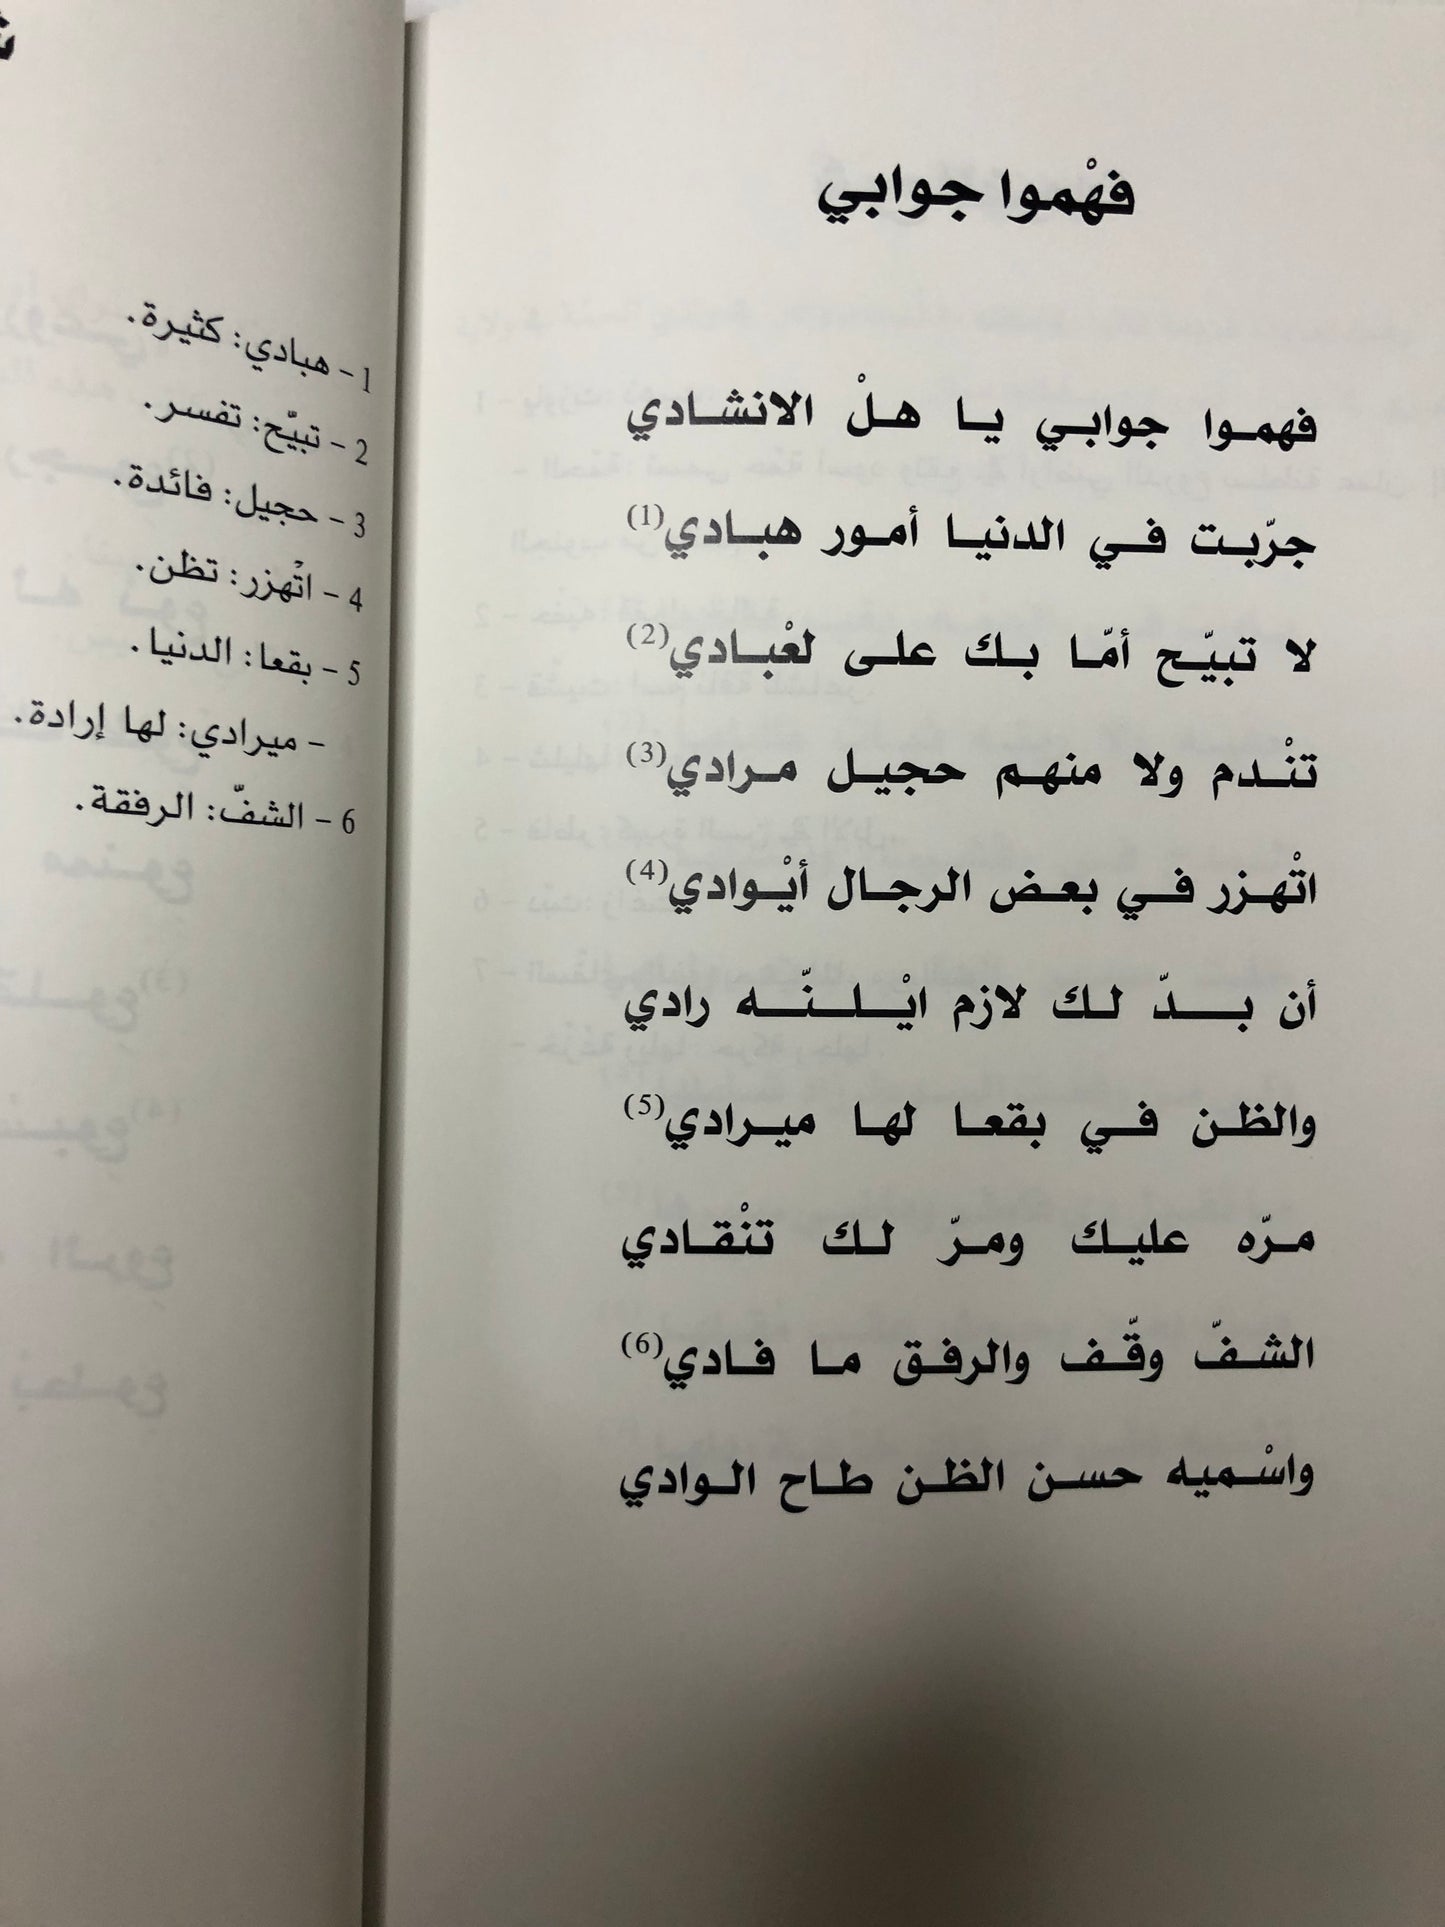 فهْموا جوابي
فهموا جوابي يا هلْ الانشادي
جرّبت في الدنيا أمور هبادي(1)
لا تبيّح أمّا بك على لعْبادي(2)
تنْدم ولا منهم حجيل مرادي(3)
اتْهزر في بعض الرجال أيْوادي(4)
أن بدّ لك لازم ايْلنّه رادي
والظن في بقعا لها ميرادي(5)
مرّه عليك ومرّ لك تنْقادي
الشفّ وقّف والرفق ما فادي(6)
واسْميه حسن الظن طاح الوادي
1 - هبادي: كثيرة.
2 - تبيّح: تفسر.
3 - حجيل: فائدة.
4 - اتْهزر: تظن.
5 - بقعا: الدنيا.
- ميرادي: لها إرادة.
6 - الشفّ: الرفقة.